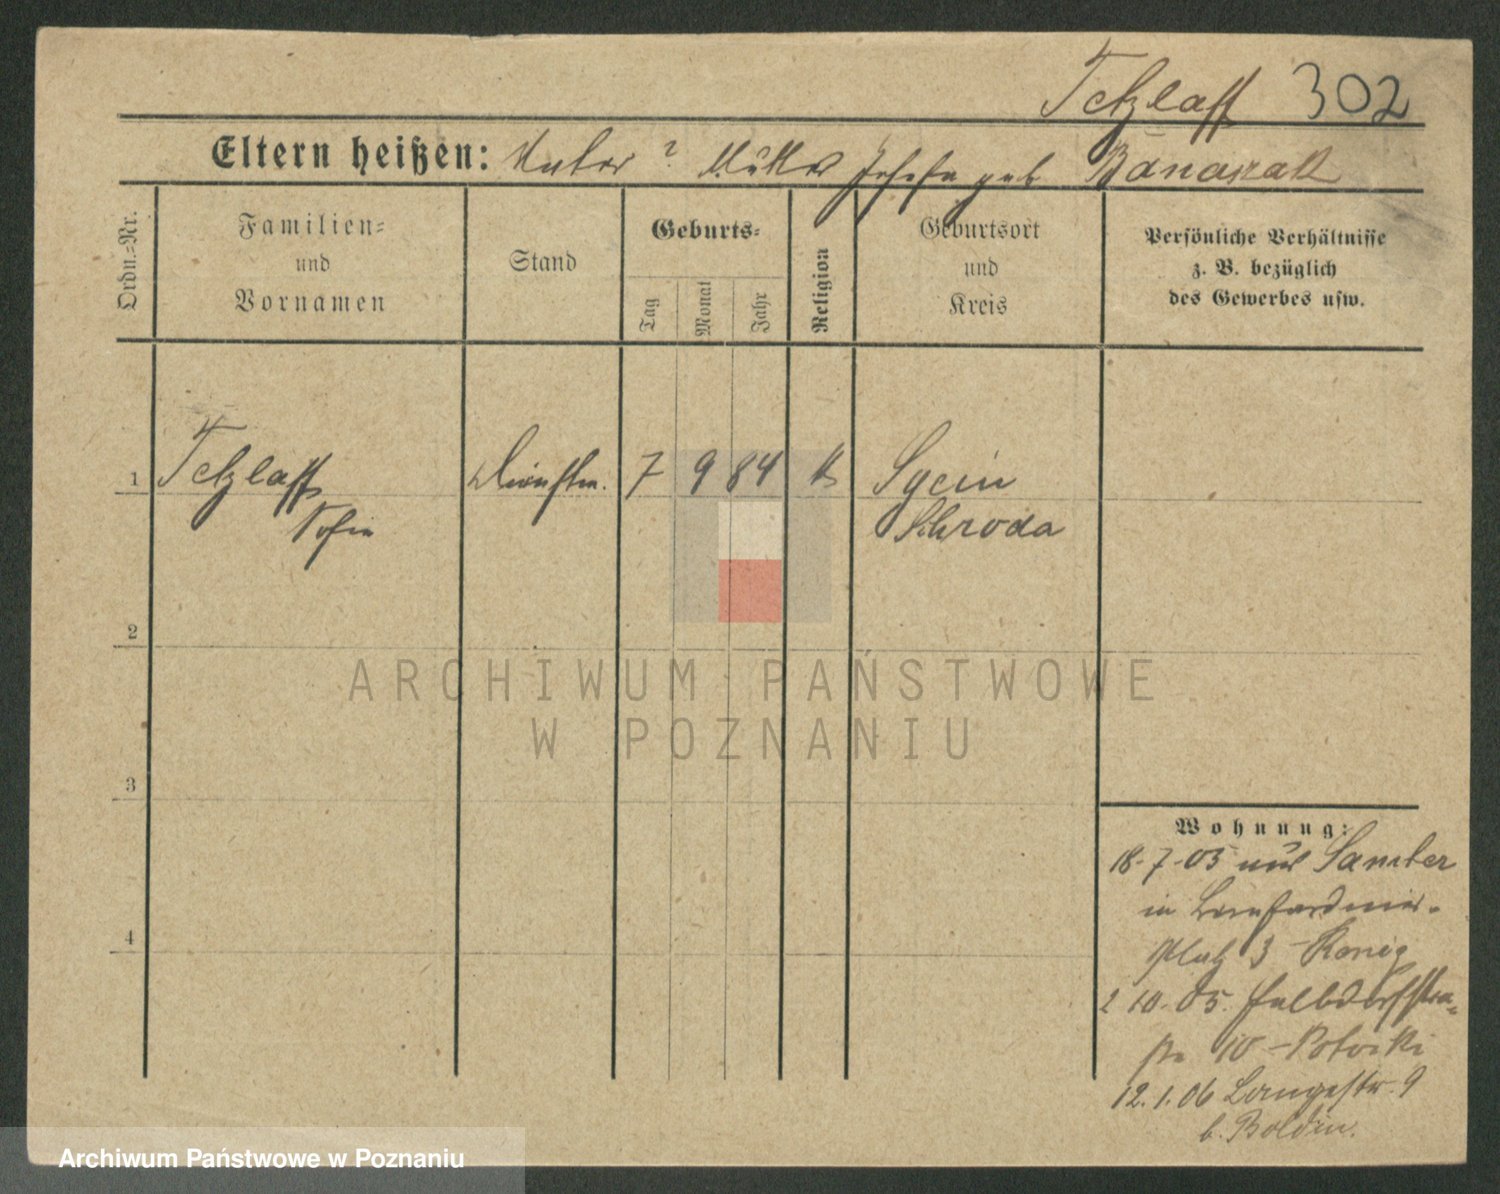 Tetzlaff 302
Eltern heißen: Vater ? Mutter Josefa geb Banaszak
Ordn.-Nr.
Familien-
und
Vornamen
Stand
Geburts-
Tag
Monat
Jahr
Religion
Geburtsort
und
Kreis
Persönliche Verhältnisse
z. B. bezüglich
des Gewerbes usw.
1 Tetzlaff Dienstm. 7 9 84 k
Sofie Schroda
2
3
4
Wohnung:
18-7-05 aus Samter
in Bernhardiner-
platz 3 König
2 10-05.
10 - Potocki
12.1.06 Langestr. 9
b. Boldin.
ARCHIWUM PAŃSTWOWE
W POZNANIU
Archiwum Państwowe w Poznaniu